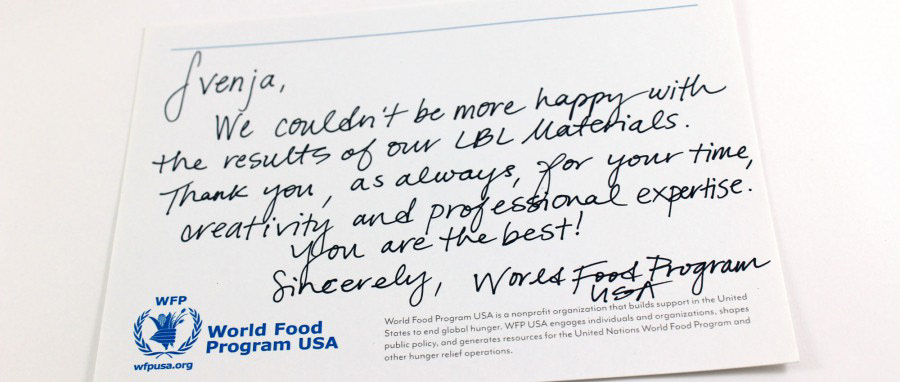 Svenja,
We couldn't be more happy with
the results of our LBL Materials.
Thank you, as always, for your time,
creativity and professional expertise.
you are the best!
Sincerely, World Food Program
USA
WFP
World Food
Program USA
wfpusa.org
World Food Program USA is a nonprofit organization that builds support in the United
States to end global hunger. WFP USA engages individuals and organizations, shapes
public policy, and generates resources for the United Nations World Food Program and
other hunger relief operations.